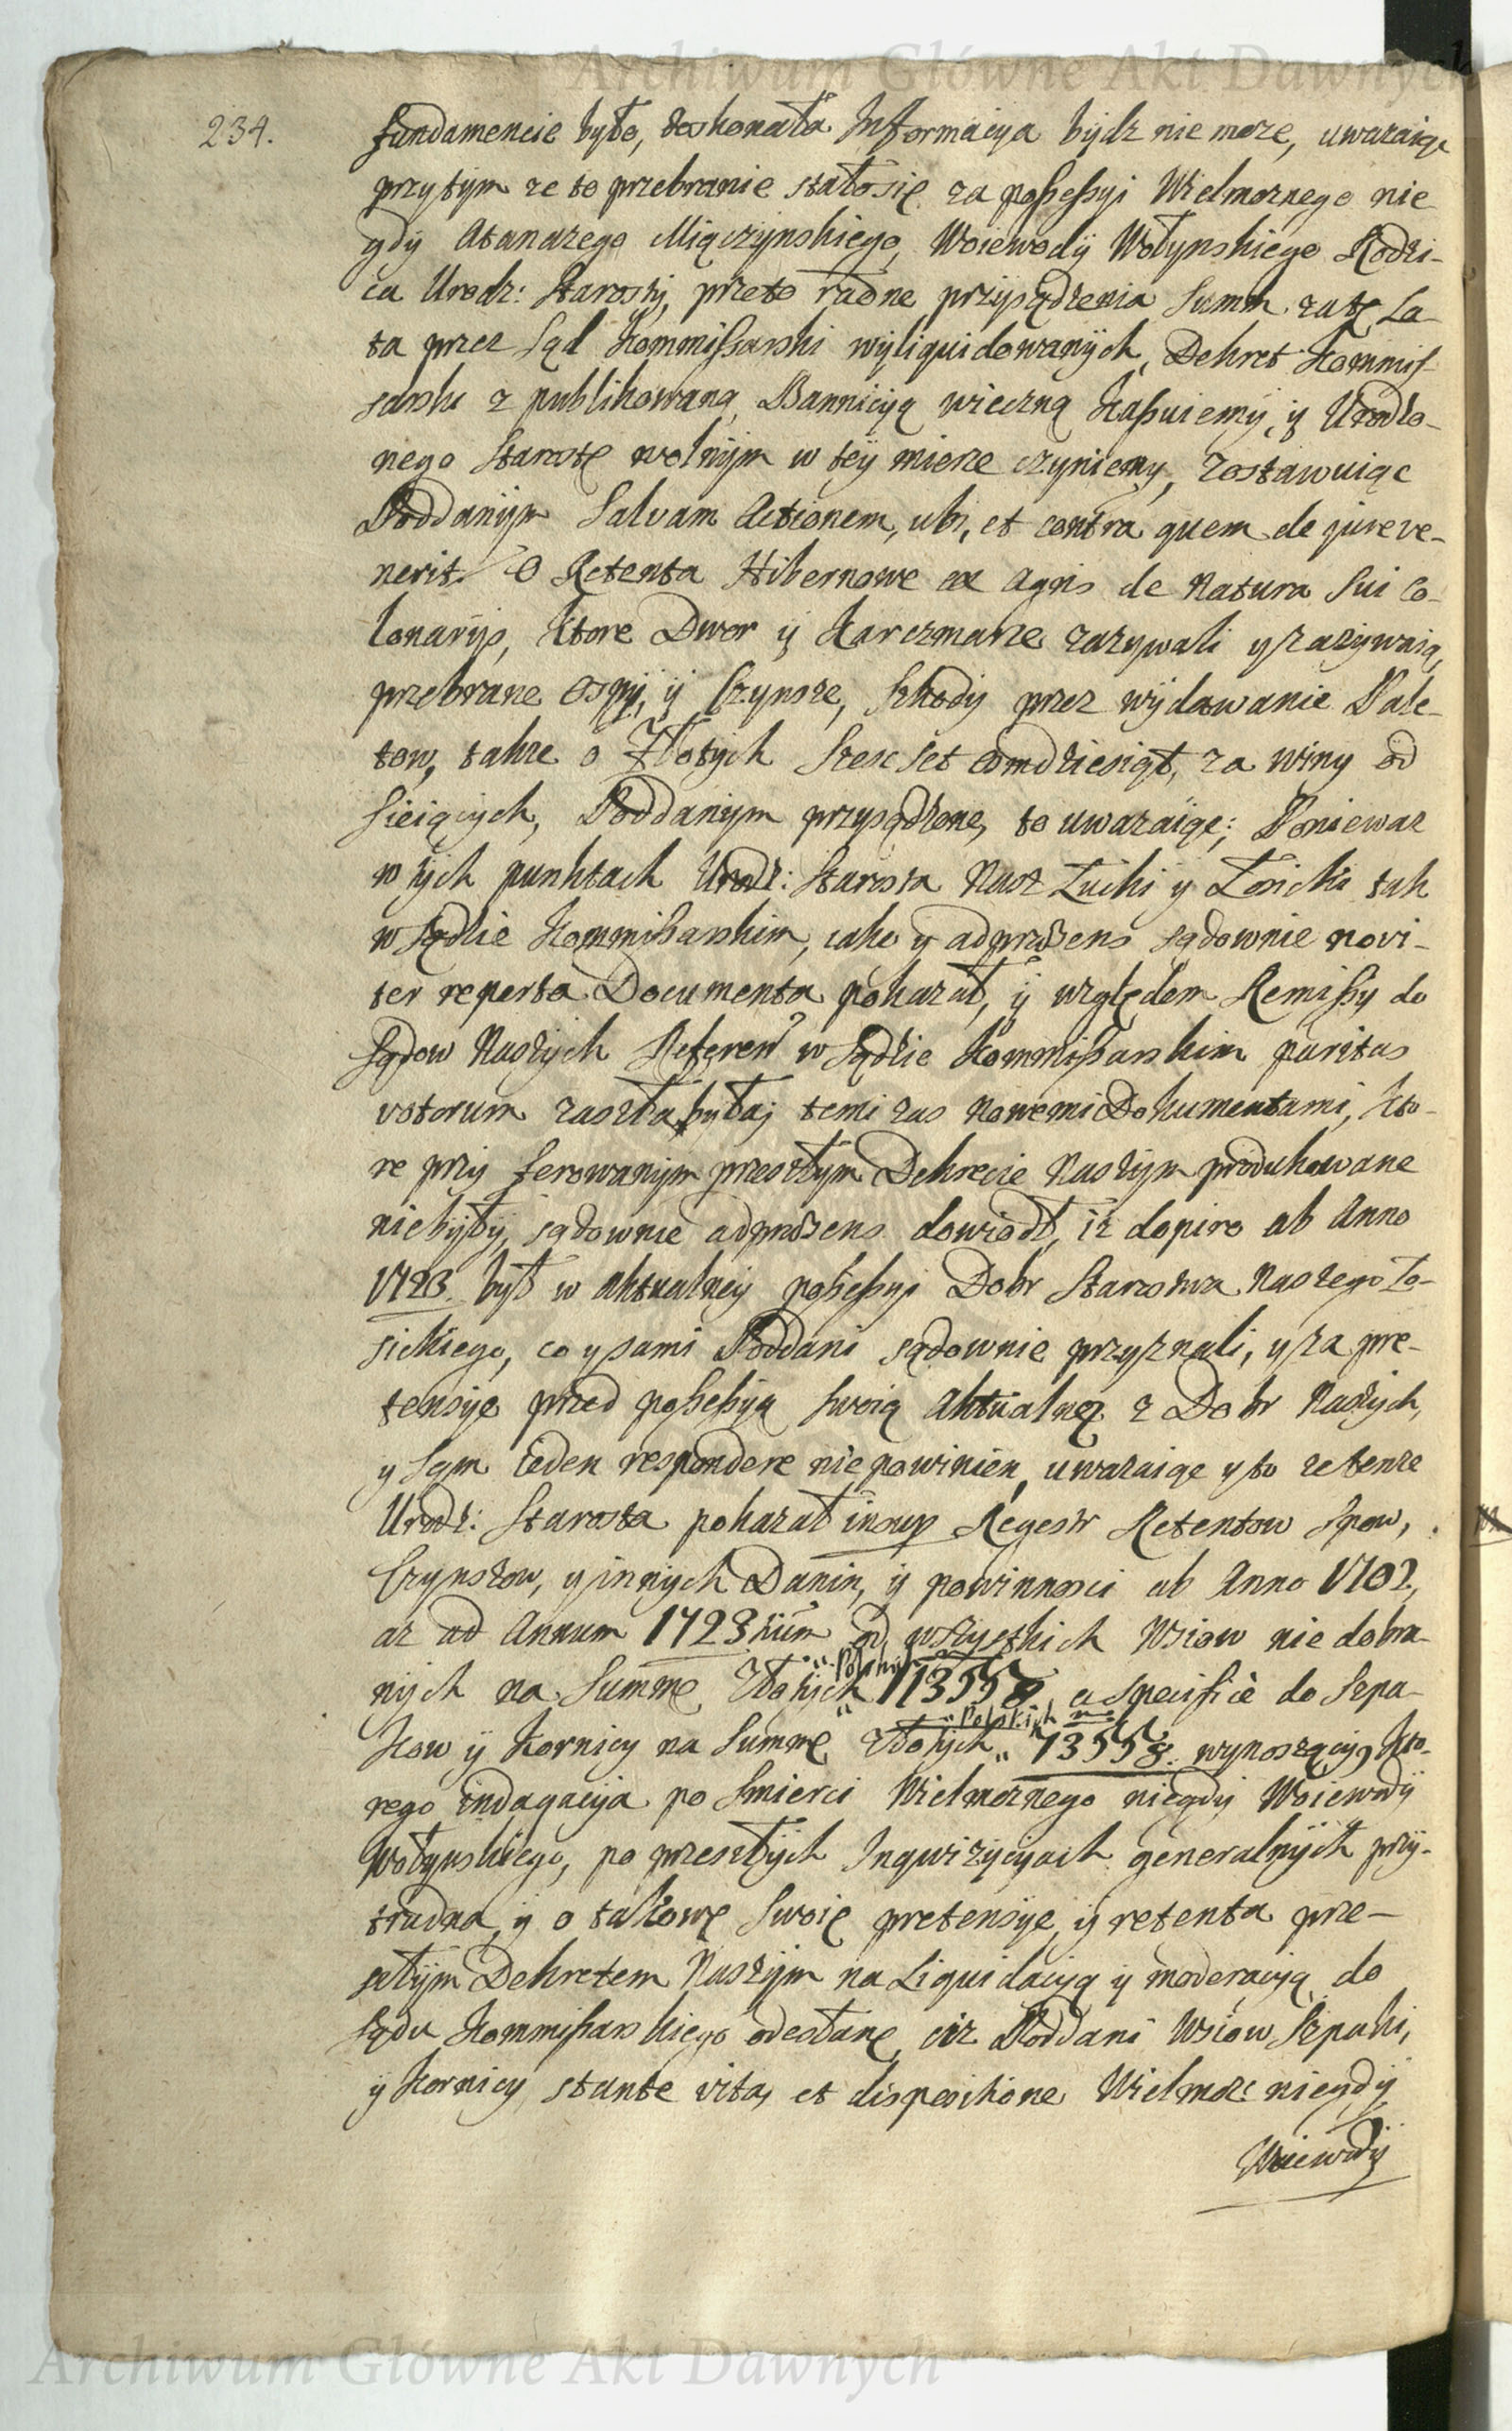 Archiwum Główne Akt Dawnych
234.
fundamencie było, doskonała Informacya bydz nie moze, uwazaiąc
przytym ze to przebranie stałosię za possessyi Wielmoznego nie
gdy Atanazego Miączynskiego, Woiewody Wołynskiego Rodzi-
ca Urodz: Starosty, przeto zadne przysądzenia Summ za te La-
ta przez Sąd Kommissarski wyliquidowanych, Dekret Kommis-
sarski z publikowaną Bannicyą wieczną Kassuiemy, y Urodzo-
nego Starostę wolnym w tey mierze czyniemy, zostawuiąc
Poddanym Salvam Actionem, ubi, et contra quem de jure ve-
nerit. O Retenta Hibernowe ex Agris de Natura Sui Co-
lonarijs, ktore Dwor y Karczmarze zazywali y zazywaią,
przebrane Osypy, y Czynsze, Szkody przez wydawanie Pale-
tow, takze o Złotych Szesc set osmdziesiąt, za winy od
Sieiących, Poddanym przysądzone, to uwazaiąc; Poniewaz
w tych punktach Urodz: Starosta Nasz Łucki y Łosicki tak
w Sądzie Kommissarskim, iako y adpraesens sądownie novi-
ter reperta Documenta pokazał, y względem Remissy do
Sądow Naszych Referen w Sądzie Kommissarskim paritas
votorum zaszła była; temi zas Nowemi Dokumentami, kto-
re przy ferowanym przeszłym Dekrecie Naszym produkowane
niebyły, sądownie adpraesens dowiodł, iz dopiro ab Anno
1723. był w aktualney possessyi Dobr Starostwa Naszego Ło-
sickiego, co y sami Poddani sądownie przyznali, y za pre-
tensye przed possessyą swoią aktualną z Dobr Naszych,
y Sąm ieden respondere nie powinien, uwazaiąc y to ze tenze
Urodz: Starosta pokazał insup Regestr Retentow Spow,
Czynszow, y innych Danin, y powinnosci ab Anno 1702,
az ad Annum 1723tium od wszystkich Wsiow nie dobra-
nych na Summę Złotych „Polskich" 113558, a specifice do Szpa-
kow y Kornicy na Summę Złotych „Polskich" 73558. wynoszący, kto-
rego indagacyia po Smierci Wielmoznego niegdy Woiewody
Wołynskiego, po przeszłych Inqwizycyach generalnych przy-
trudna, y o takowę Swoię pretensye, y retenta prze-
szłym Dekretem Naszym na Liquidacyą y moderacyą do
Sądu Kommissarskiego odesłane, ciz Poddani Wsiow Szpaki,
y Kornicy stante vita, et dispositione Wielmoz: niegdy
Woiewody
Archiwum Główne Akt Dawnych